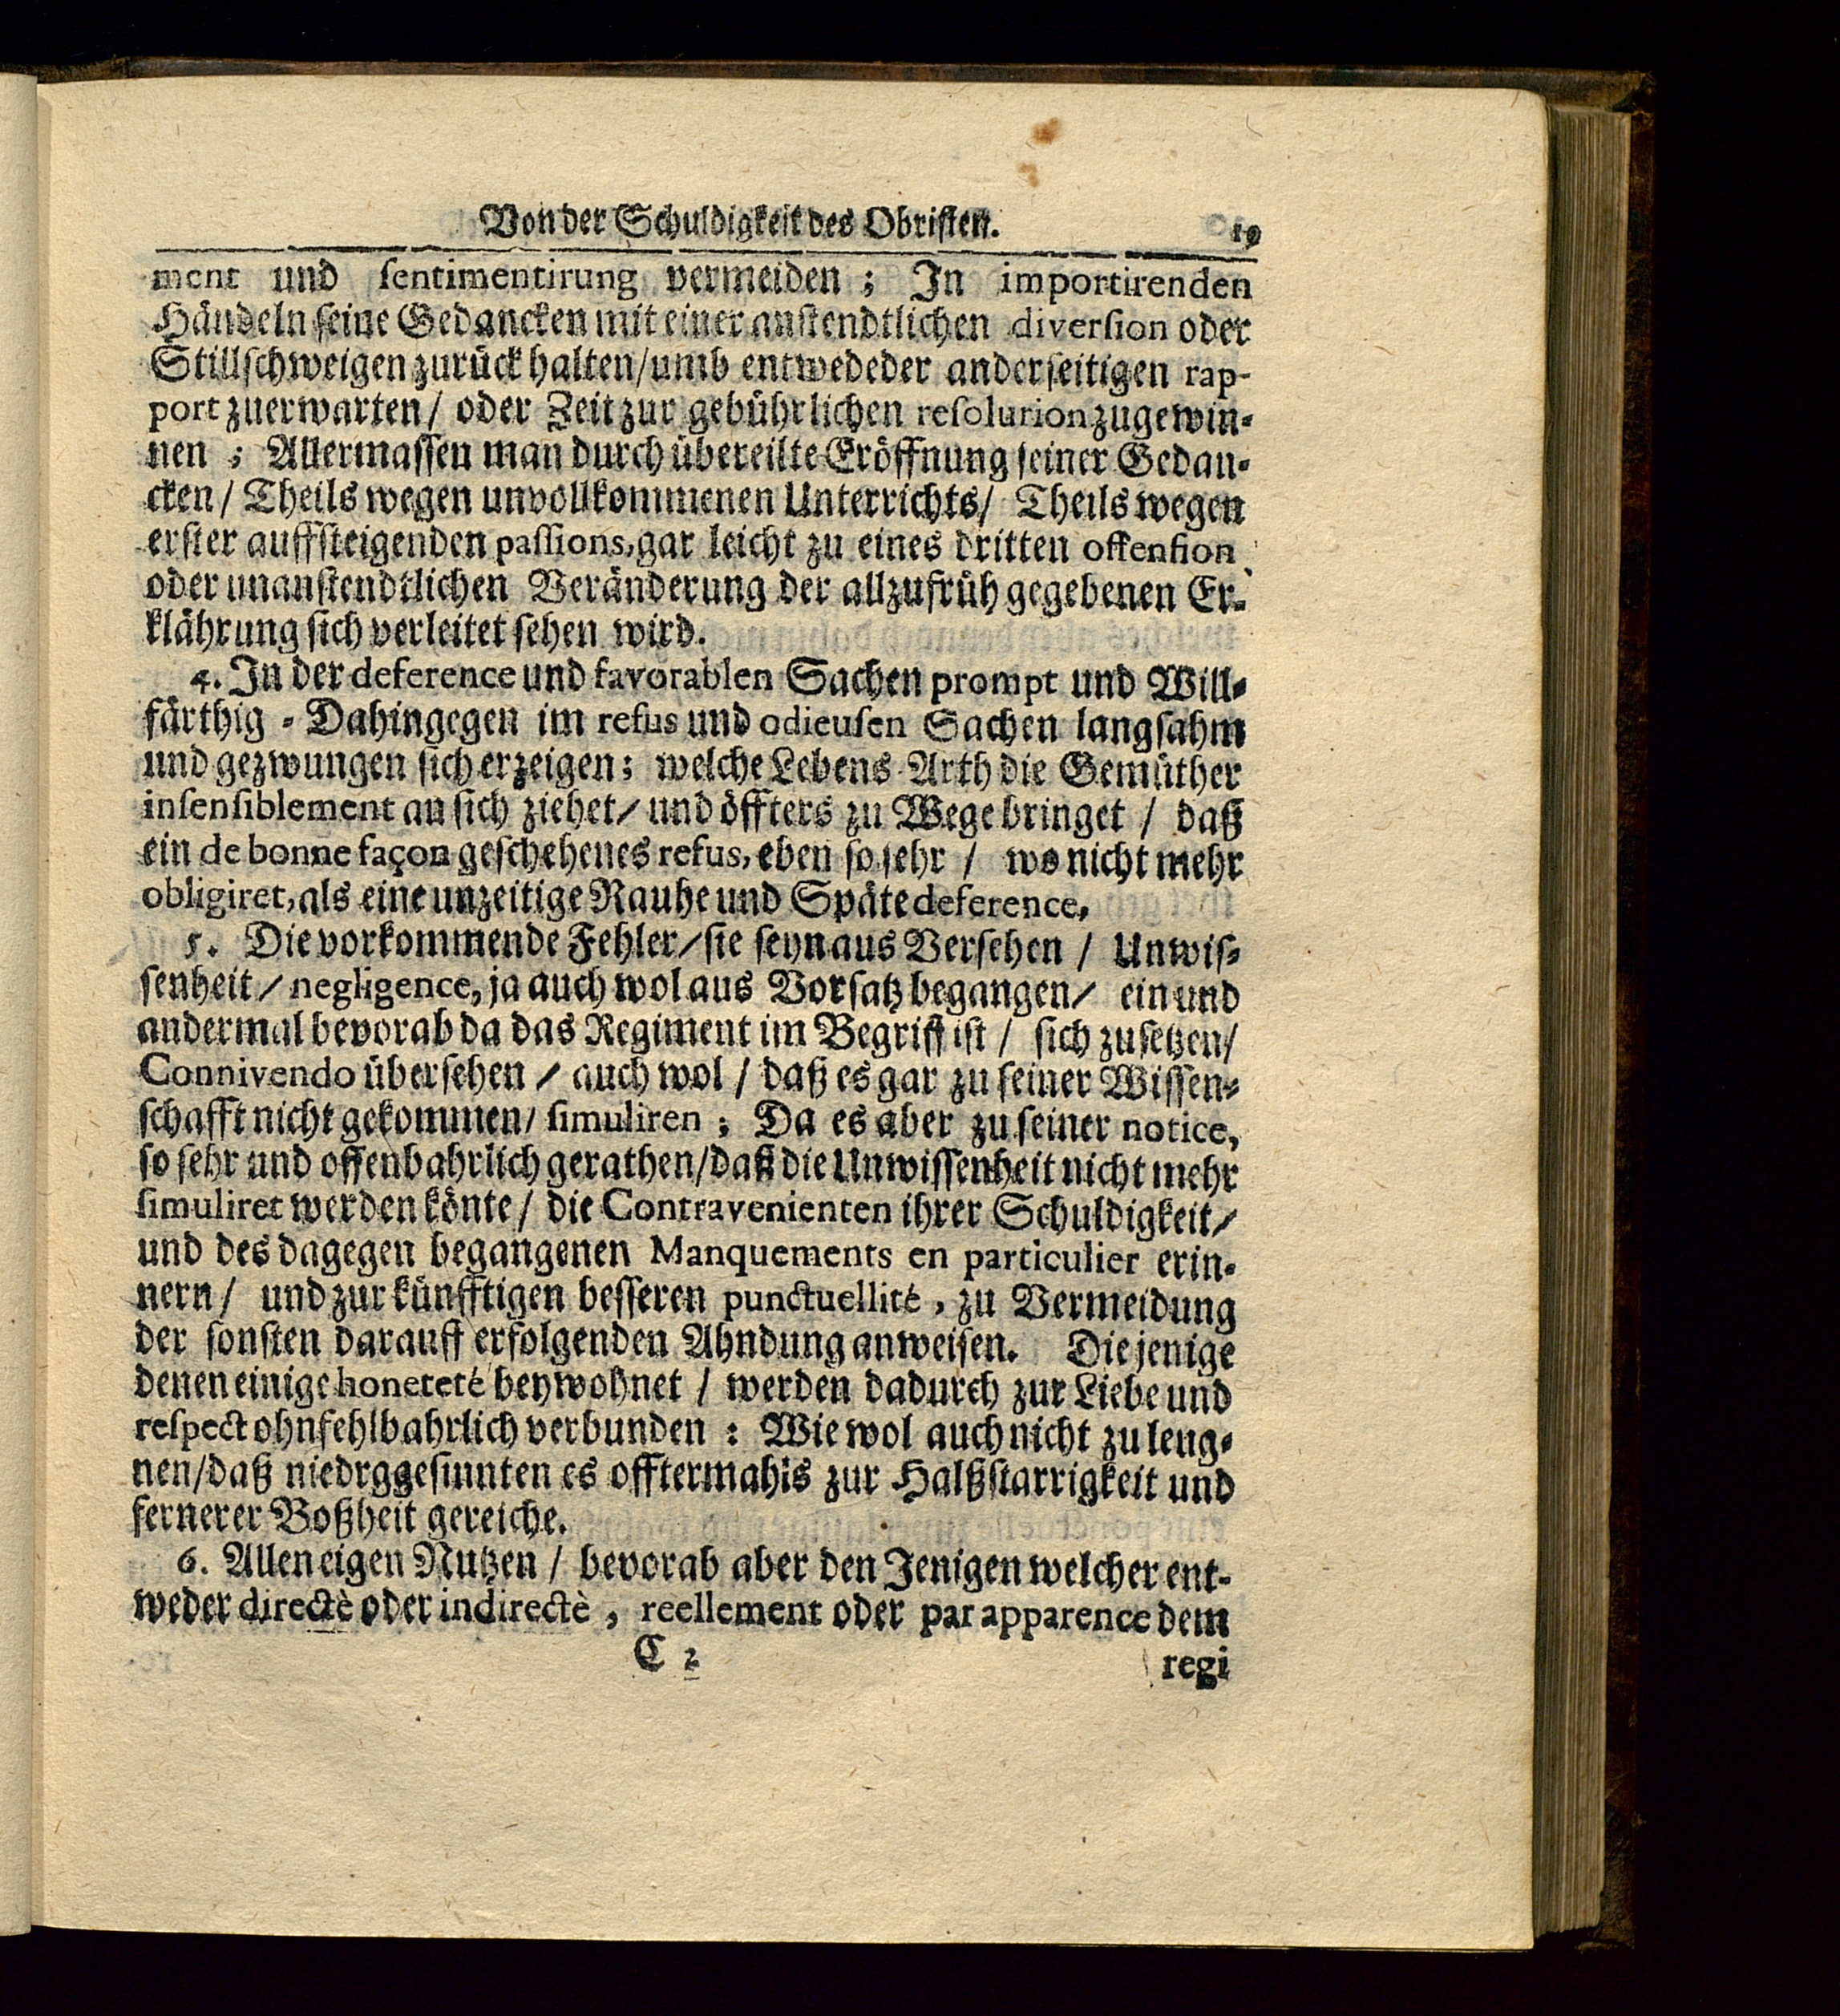 Von der Schuldigkeit des Obristen. 19
ment und sentimentirung vermeiden ; In importirenden
Händeln seine Gedancken mit einer anstendtlichen diversion oder
Stillschweigen zurück halten/umb entwededer anderseitigen rap-
port zuerwarten/ oder Zeit zur gebührlichen resolution zugewin-
nen ; Allermassen man durch übereilte Eröffnung seiner Gedan-
cken/ Theils wegen unvollkommenen Unterrichts/ Theils wegen
erster auffsteigenden passions, gar leicht zu eines dritten offension
oder unanstendtlichen Veränderung der allzufrüh gegebenen Er-
klährung sich verleitet sehen wird.
4. In der deference und favorablen Sachen prompt und Will-
färthig - Dahingegen im refus und odieusen Sachen langsahm
und gezwungen sich erzeigen; welche Lebens-Arth die Gemüther
insensiblement an sich ziehet/ und öffters zu Wege bringet / daß
ein de bonne façon geschehenes refus, eben so sehr / wo nicht mehr
obligiret, als eine unzeitige Rauhe und Späte deference,
5. Die vorkommende Fehler/sie seyn aus Versehen / Unwis-
senheit/ negligence, ja auch wol aus Vorsatz begangen/ ein und
andermal bevorab da das Regiment im Begriff ist / sich zusetzen/
Connivendo übersehen / auch wol / daß es gar zu seiner Wissen-
schafft nicht gekommen/ simuliren ; Da es aber zu seiner notice,
so sehr und offenbahrlich gerathen/daß die Unwissenheit nicht mehr
simuliret werden könte/ die Contravenienten ihrer Schuldigkeit/
und des dagegen begangenen Manquements en particulier erin-
nern/ und zur künfftigen besseren punctuellité, zu Vermeidung
der sonsten darauff erfolgenden Ahndung anweisen. Die jenige
denen einige honeteté beywohnet / werden dadurch zur Liebe und
respect ohnfehlbahrlich verbunden : Wie wol auch nicht zu leug-
nen/daß niedrggesinnten es offtermahls zur Halßstarrigkeit und
fernerer Boßheit gereiche.
6. Allen eigen Nutzen / bevorab aber den Jenigen welcher ent-
weder directè oder indirectè, reellement oder par apparence dem
C 2 regi